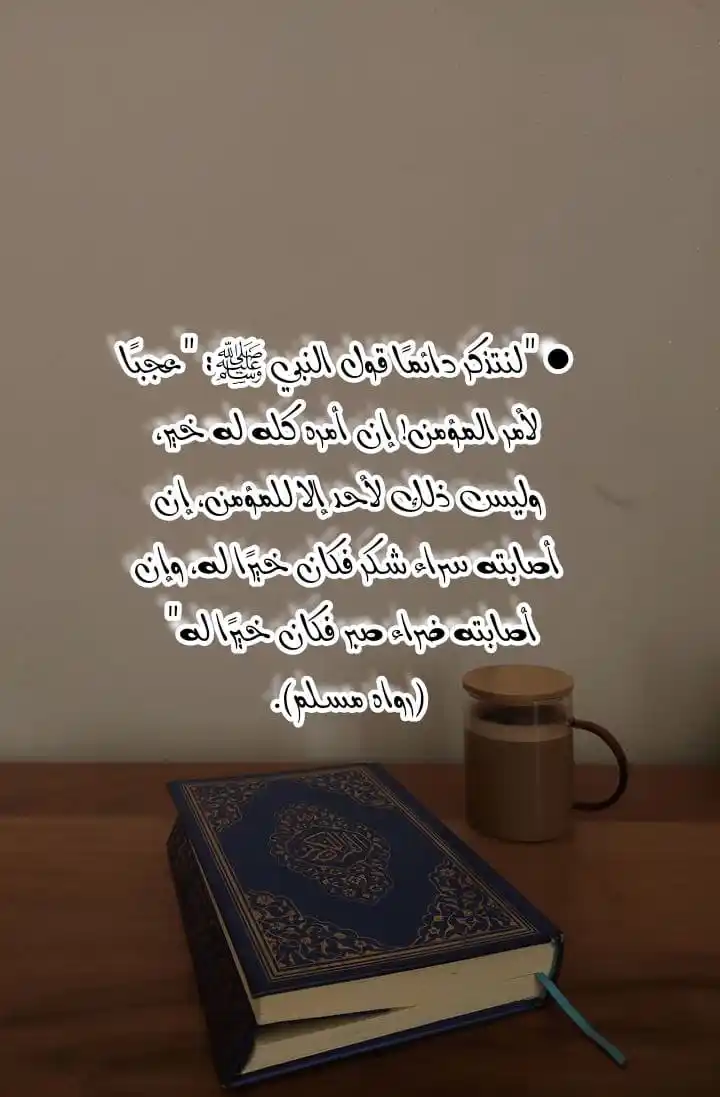 ● "لنتذكر دائمًا قول النبي ﷺ: "عجبًا
لأمر المؤمن! إن أمره كله له خير،
وليس ذلك لأحد إلا للمؤمن، إن
أصابته سراء شكر فكان خيرًا له، وإن
أصابته ضراء صبر فكان خيرًا له"
(رواه مسلم).
القرآن الكريم